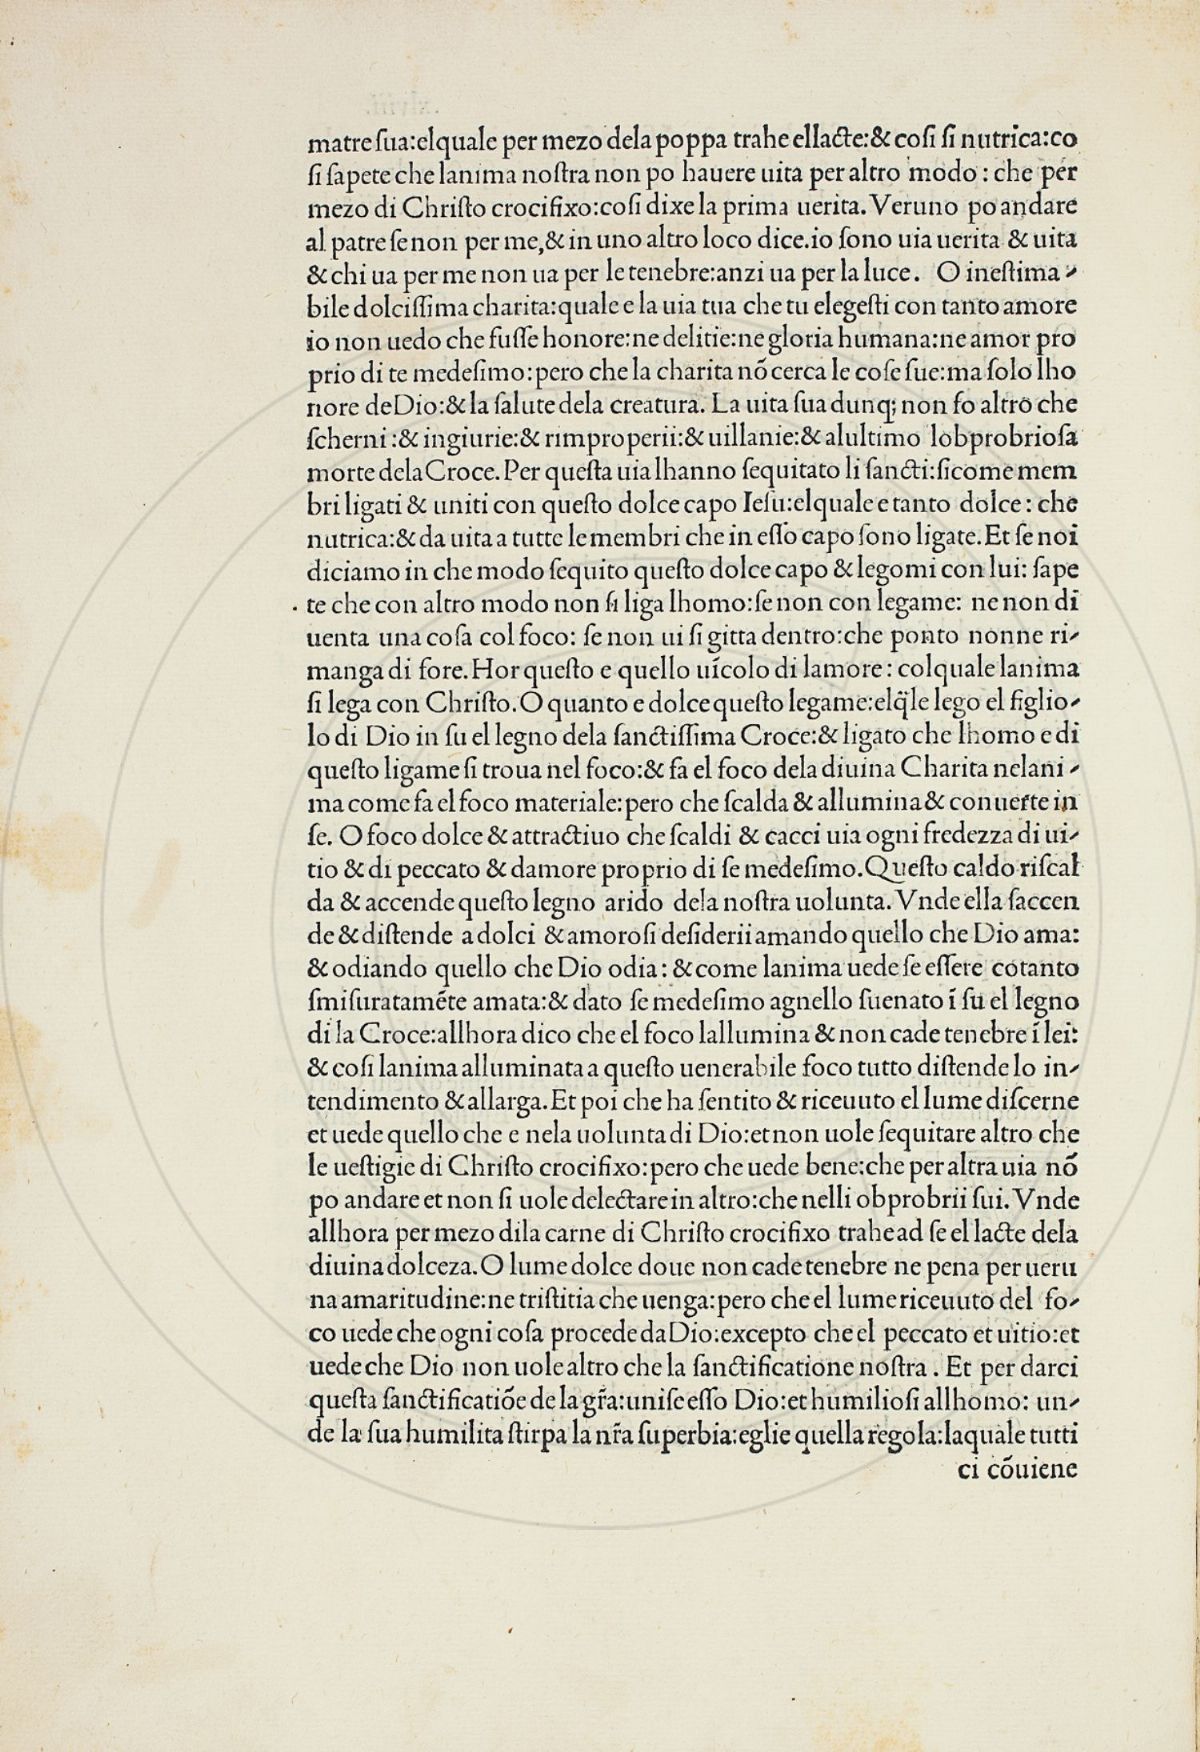 matre ſua:elquale per mezo dela poppa trahe ellacte:& coſi ſi nutrica:co
ſi ſapete che lanima noſtra non po hauere uita per altro modo : che per
mezo di Chriſto crocifixo:coſi dixe la prima uerita. Veruno po andare
al patre ſe non per me,& in uno altro loco dice.io ſono uia uerita & uita
& chi ua per me non ua per le tenebre:anzi ua per la luce. O ineſtima-
bile dolciſſima charita:quale e la uia tua che tu elegeſti con tanto amore
io non uedo che fuſſe honore:ne delitie:ne gloria humana:ne amor pro
prio di te medeſimo:pero che la charita nō cerca le coſe ſue:ma ſolo lho
nore deDio:& la ſalute dela creatura. La uita ſua dunq; non fo altro che
ſcherni :& ingiurie:& rimproperii:& uillanie:& alultimo lobprobrioſa
morte dela Croce. Per queſta uia lhanno ſequitato li ſancti:ſicome mem
bri ligati & uniti con queſto dolce capo Ieſu:elquale e tanto dolce : che
nutrica:& da uita a tutte le membri che in eſſo capo ſono ligate. Et ſe noi
diciamo in che modo ſequito queſto dolce capo & legomi con lui: ſape
te che con altro modo non ſi liga lhomo:ſe non con legame: ne non di
uenta una coſa col foco: ſe non ui ſi gitta dentro:che ponto nonne ri-
manga di fore. Hor queſto e quello uīcolo di lamore : colquale lanima
ſi lega con Chriſto. O quanto e dolce queſto legame:elq̄le lego el figlio-
lo di Dio in ſu el legno dela ſanctiſſima Croce:& ligato che lhomo e di
queſto ligame ſi troua nel foco:& fa el foco dela diuina Charita nelani-
ma come fa el foco materiale:pero che ſcalda & allumina & conuerte in
ſe. O foco dolce & attractiuo che ſcaldi & cacci uia ogni fredezza di ui-
tio & di peccato & damore proprio di ſe medeſimo. Queſto caldo riſcal
da & accende queſto legno arido dela noſtra uolunta. Vnde ella ſaccen
de & diſtende a dolci & amoroſi deſiderii amando quello che Dio ama:
& odiando quello che Dio odia : & come lanima uede ſe eſſere cotanto
ſmiſuratamēte amata:& dato ſe medeſimo agnello ſuenato ī ſu el legno
di la Croce:allhora dico che el foco lallumina & non cade tenebre ī lei:
& coſi lanima alluminata a queſto uenerabile foco tutto diſtende lo in-
tendimento & allarga. Et poi che ha ſentito & riceuuto el lume diſcerne
et uede quello che e nela uolunta di Dio:et non uole ſequitare altro che
le ueſtigie di Chriſto crocifixo:pero che uede bene:che per altra uia nō
po andare et non ſi uole delectare in altro:che nelli obprobrii ſui. Vnde
allhora per mezo dila carne di Chriſto crocifixo trahe ad ſe el lacte dela
diuina dolceza. O lume dolce doue non cade tenebre ne pena per ueru
na amaritudine:ne triſtitia che uenga:pero che el lume riceuuto del fo-
co uede che ogni coſa procede da Dio:excepto che el peccato et uitio:et
uede che Dio non uole altro che la ſanctificatione noſtra . Et per darci
queſta ſanctificatiōe de la gr̄a:uniſe eſſo Dio:et humilioſi allhomo: un-
de la ſua humilita ſtirpa la nr̄a ſuperbia:eglie quella regola:laquale tutti
ci cōuiene